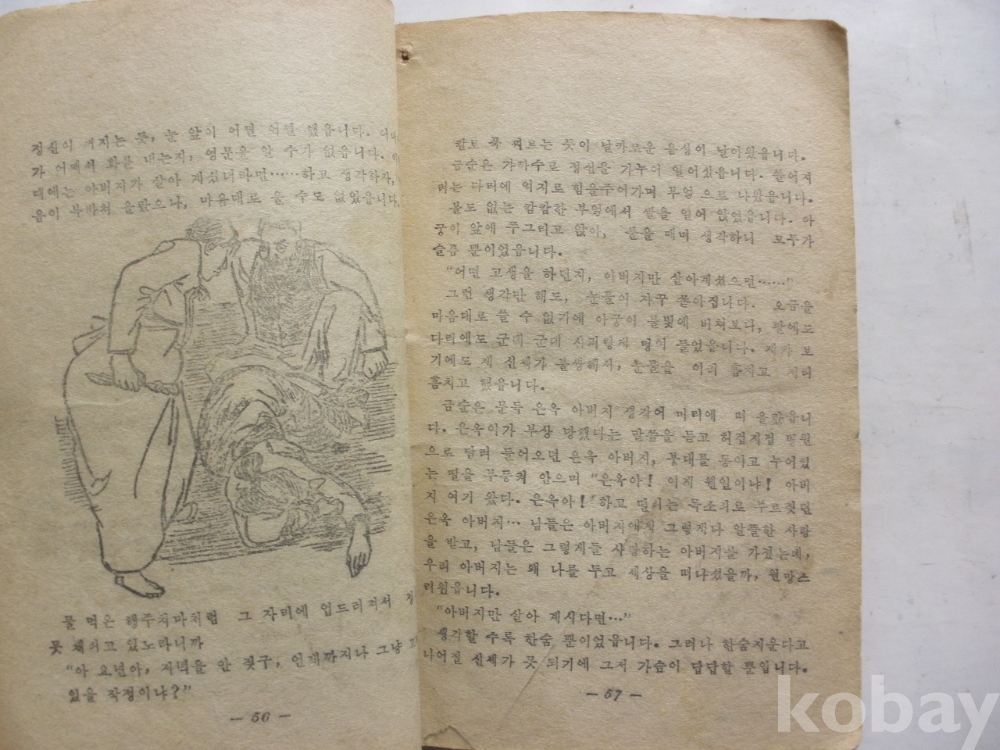 정신이 꺼지는 듯, 눈 앞이 어떤 했읍니다.
가 어째서 화를 내는지, 영문을 알 수가 없읍니다.
때에는 아버지가 살아 계셨더라면……하고 생각하자,
음이 북바쳐 올랐으나, 마음대로 울 수도 없었읍니다.
물 먹은 행주치마처럼 그 자리에 엎드러져서
못 채리고 있노라니까
"아 요년아, 저녁을 안 짓구, 언제까지나 그냥
있을 작정이냐?"
— 56 —
칼로 푹 찌르는 듯이 날카로운 음성이 날아왔읍니다.
금순은 가까수로 정신을 가누어 일어섰읍니다. 쓸어져
리는 다리에 억지로 힘을주어가며 부엌 으로 나왔읍니다.
불도 없는 캄캄한 부엌에서 쌀을 일어 앉혔읍니다. 아
궁이 앞에 쭈그리고 앉아, 불을 때며 생각하니 모두가
슬픔 뿐이었읍니다.
"어떤 고생을 하던지, 아버지만 살아계셨으면……"
그런 생각만 해도, 눈물이 자꾸 쏟아집니다. 오금을
마음대로 쓸 수 없기에 아궁이 불빛에 비쳐보니, 팔에도
다리에도 군데 군데 시퍼렇게 멍이 들었읍니다. 제가 보
기에도 제 신세가 불쌍해서, 눈물을 이리 훔치고 저리
훔치고 했읍니다.
금순은 문득 은옥 아버지 생각이 머리에 떠 올랐읍니
다. 은옥이가 부상 당했다는 말씀을 듣고 허겁지겁 병원
으로 달려 들어오던 은옥 아버지, 붕대를 동이고 누어있
는 딸을 부둥켜 안으며 "은옥아! 이게 웬일이냐! 아버
지 여기 왔다. 은옥아! 하고 떨리는 목소리로 부르짖던
은옥 아버지… 남들은 아버지에게 그렇게나 알뜰한 사랑
을 받고, 남들은 그렇게들 사랑하는 아버지를 가졌는데,
우리 아버지는 왜 나를 두고 세상을 떠나셨을까, 원망스
러웠읍니다.
"아버지만 살아 계시다면…"
생각할 수록 한숨 뿐이었읍니다. 그러나 한숨지운다고
나어질 신세가 못 되기에 그저 가슴이 답답할 뿐입니다.
— 57 —
kobay